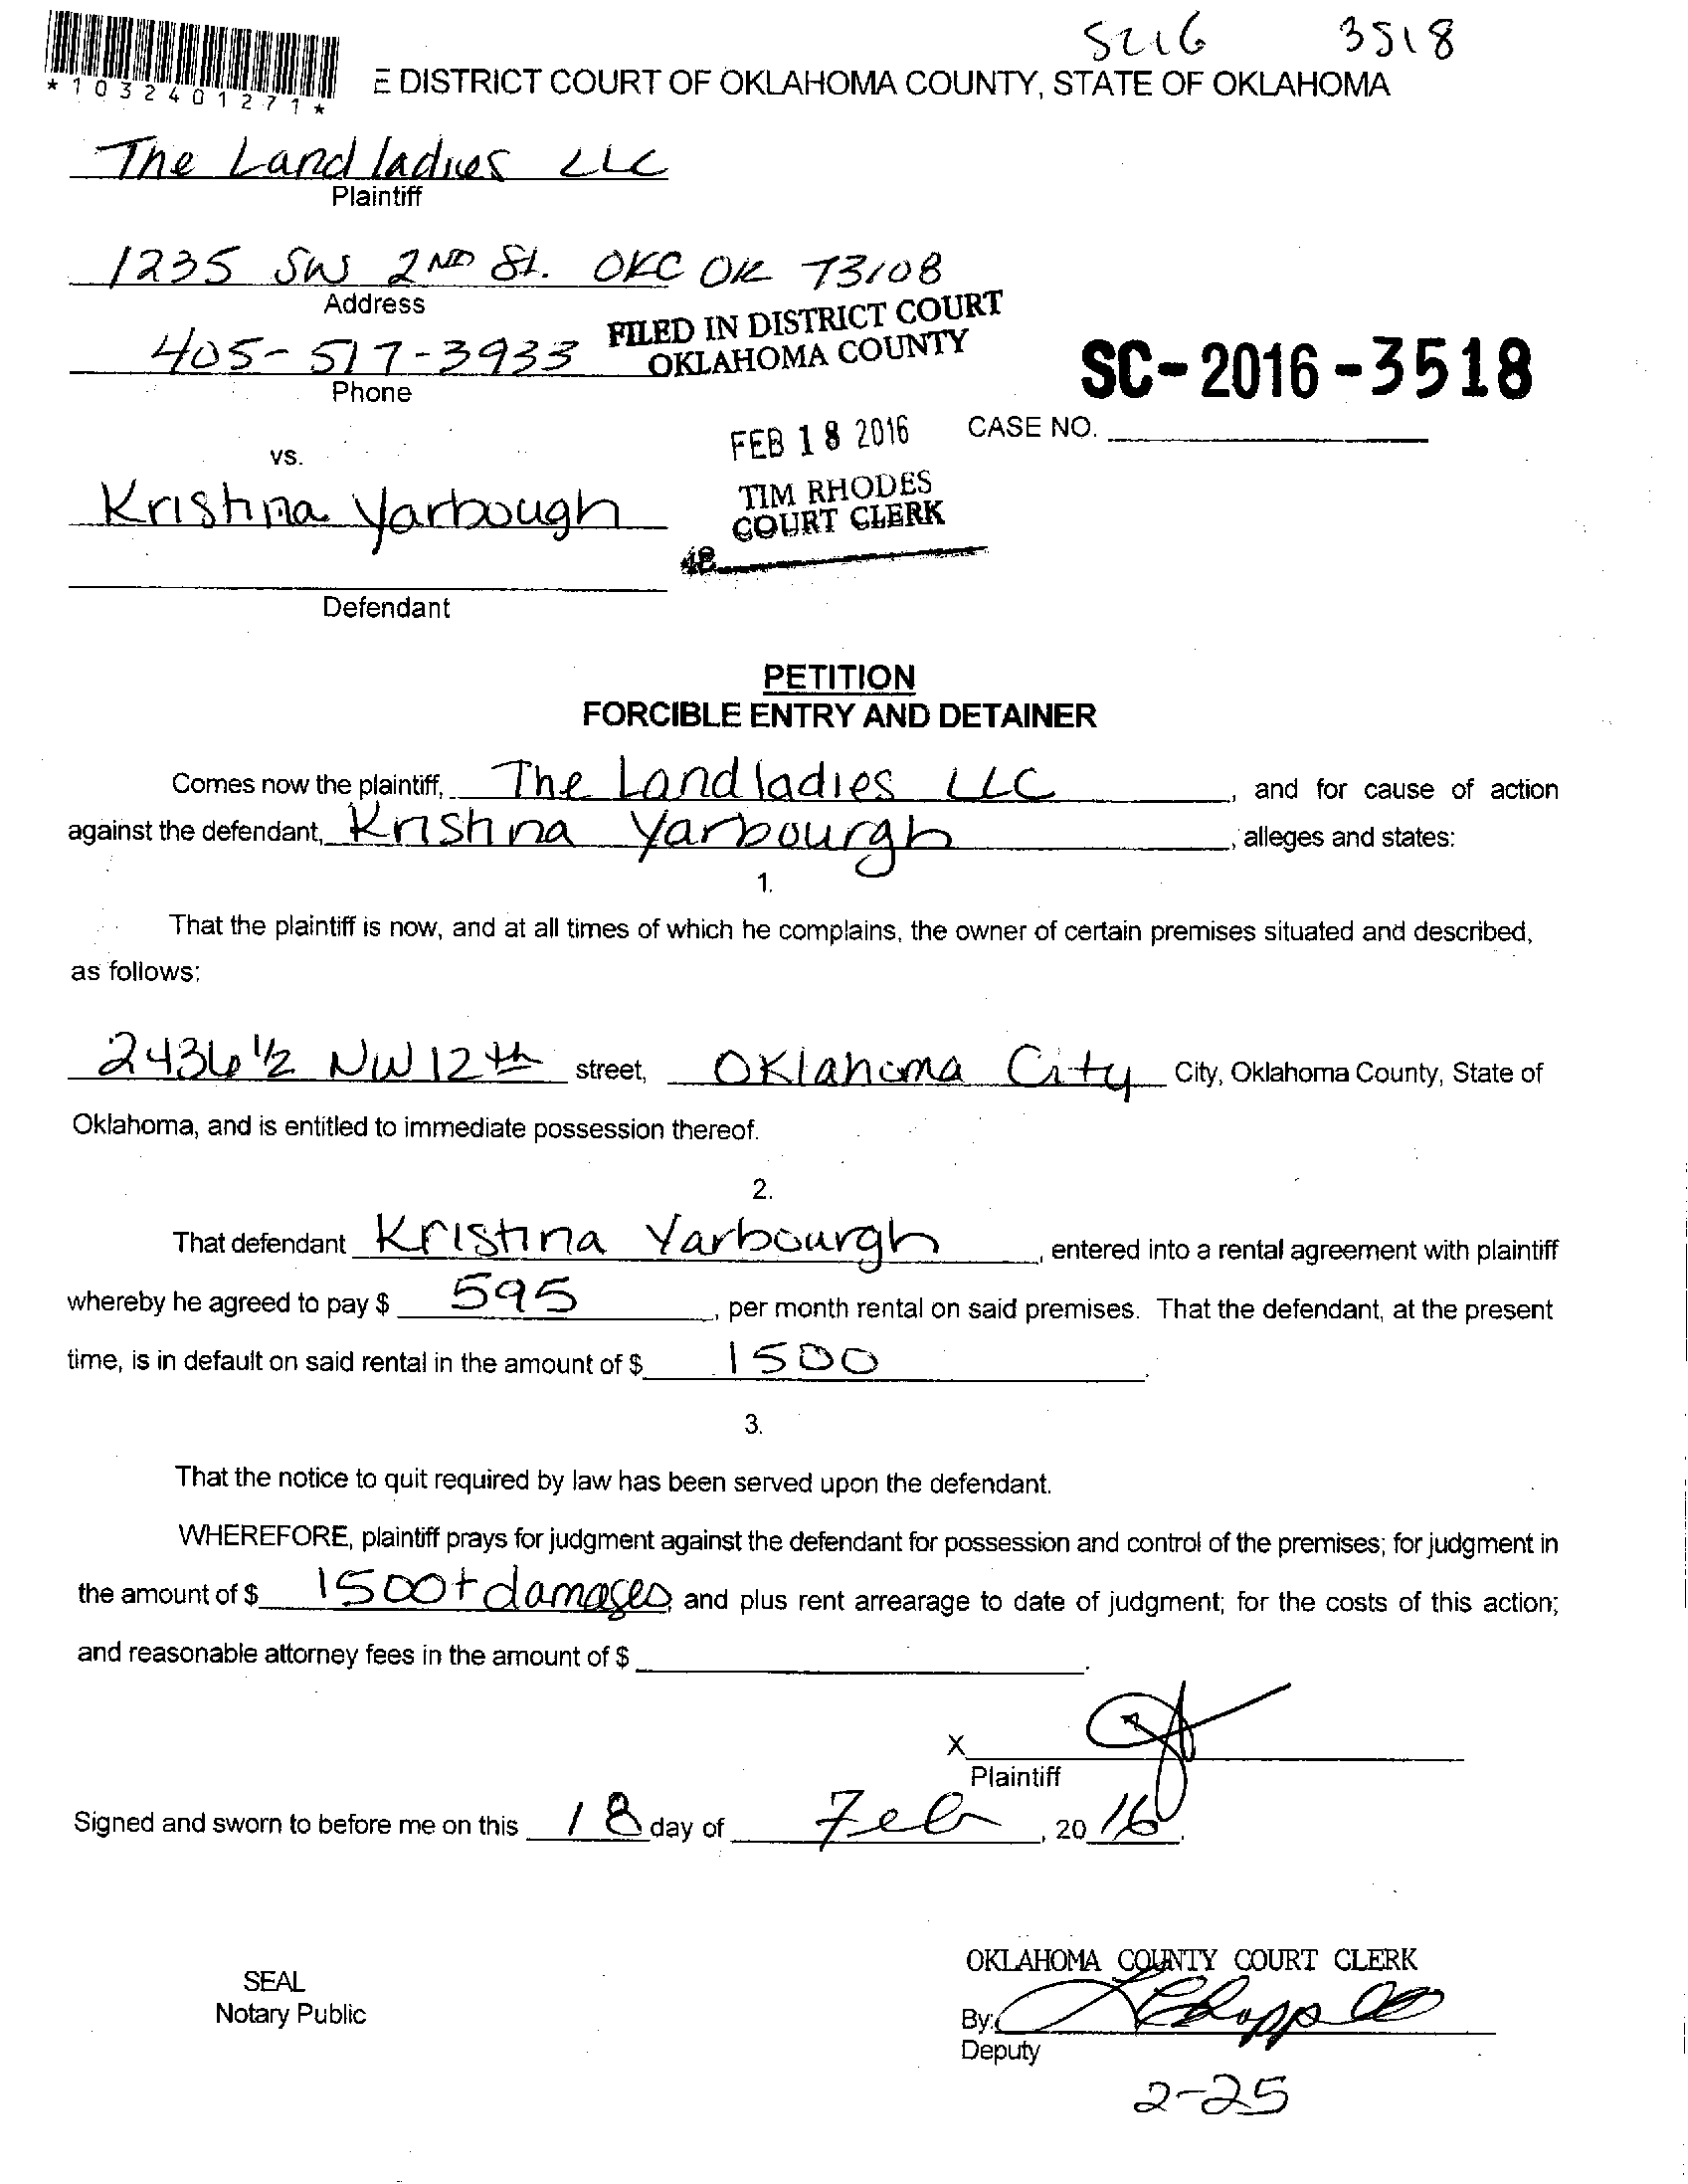 SC16 3518
*1032401271*
E DISTRICT COURT OF OKLAHOMA COUNTY, STATE OF OKLAHOMA
The Landladies LLC
Plaintiff
1235 SW 2ND St. OKC OK 73108
Address
FILED IN DISTRICT COURT
OKLAHOMA COUNTY
405-517-3933
Phone
SC-2016-3518
FEB 18 2016
CASE NO.
vs.
Kristina Yarbough
TIM RHODES
COURT CLERK
Defendant
PETITION
FORCIBLE ENTRY AND DETAINER
Comes now the plaintiff, The Landladies LLC, and for cause of action
against the defendant, Kristina Yarbourgh, alleges and states:
1.
That the plaintiff is now, and at all times of which he complains, the owner of certain premises situated and described,
as follows:
2436 1/2 NW 12th street, Oklahoma City City, Oklahoma County, State of
Oklahoma, and is entitled to immediate possession thereof.
2.
That defendant Kristina Yarbourgh, entered into a rental agreement with plaintiff
whereby he agreed to pay $ 595, per month rental on said premises. That the defendant, at the present
time, is in default on said rental in the amount of $ 1500.
3.
That the notice to quit required by law has been served upon the defendant.
WHEREFORE, plaintiff prays for judgment against the defendant for possession and control of the premises; for judgment in
the amount of $ 1500+damages, and plus rent arrearage to date of judgment; for the costs of this action;
and reasonable attorney fees in the amount of $ .
X
Plaintiff
Signed and sworn to before me on this 18 day of Feb, 2016.
OKLAHOMA COUNTY COURT CLERK
SEAL
Notary Public
By:
Deputy
2-25